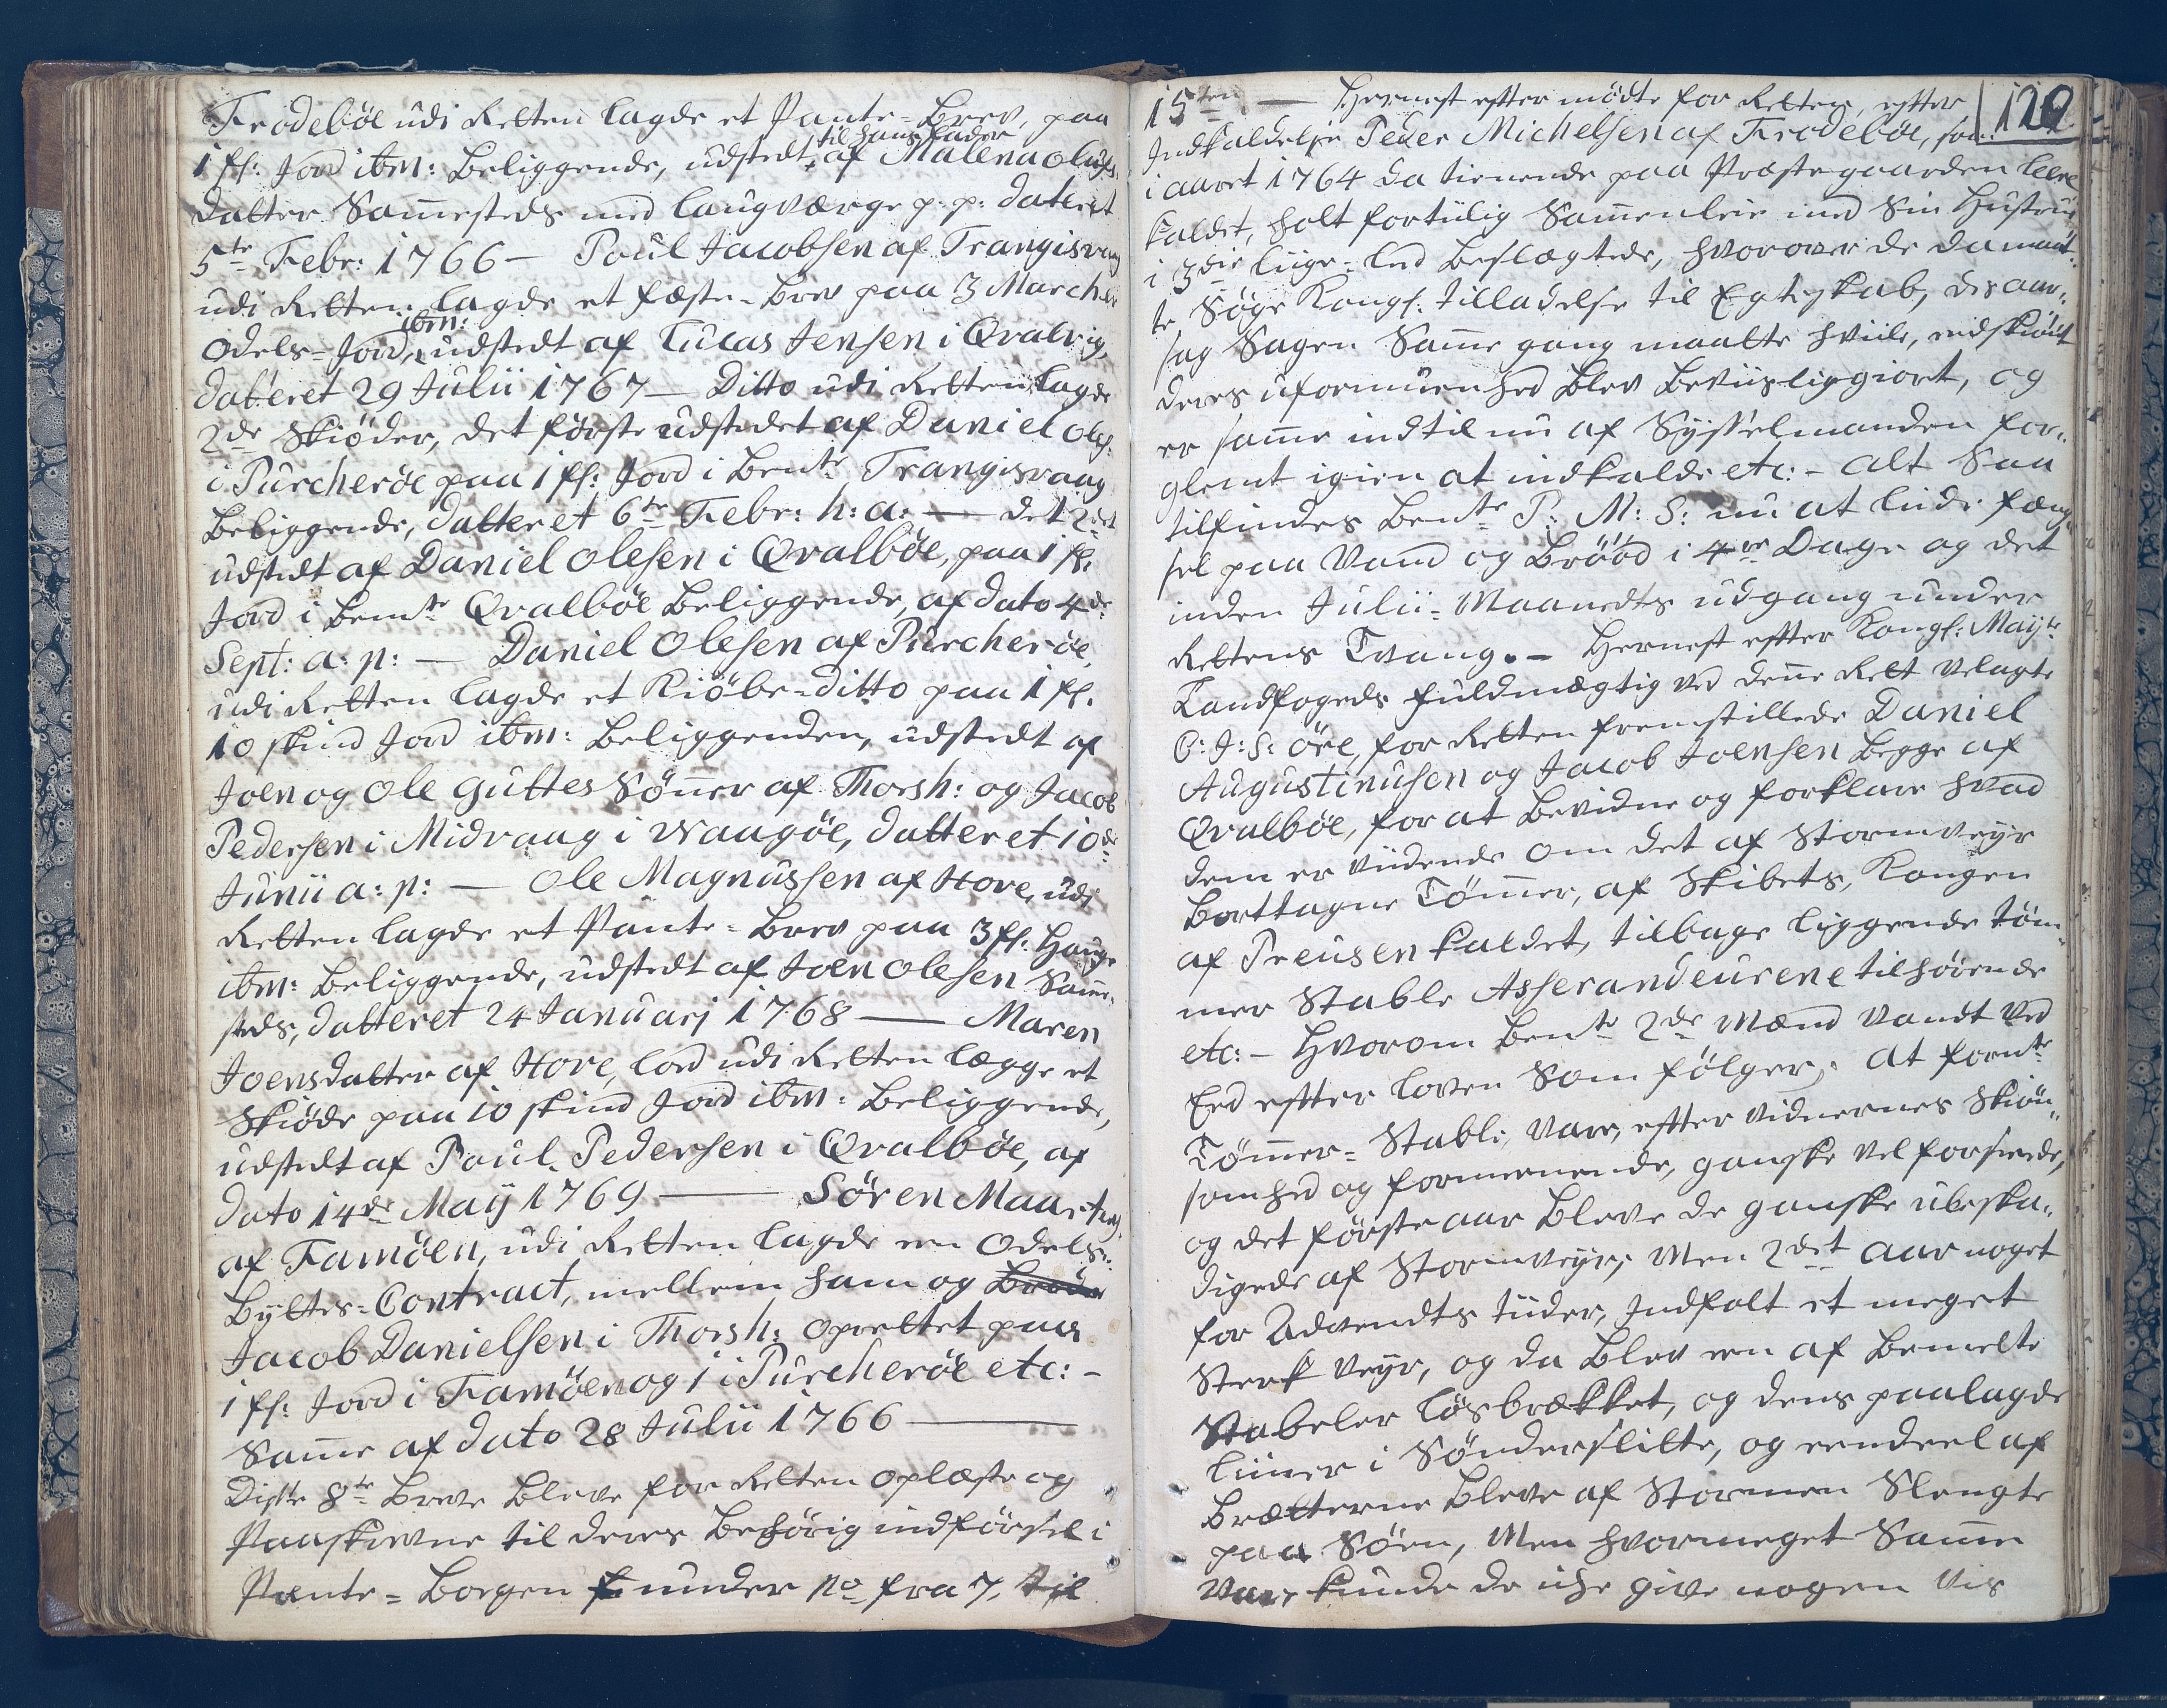 Frodebøe udi Retten lagde et Pante-Brev, paa
til hans fader
1 ff: Jord ibm: Beliggende, udstedt, af Malena Olufs
datter Sammesteds med laugværge p. p. dateret
5te Febr: 1766 — Poul Jacobsen af Trangisvaag
udi Retten lagde et fæste-Brev paa 3 Marcher
ibm:
Odels-Jord, udstedt af Lucas Jensen i Qvalvig,
datteret 29 Julii 1767 — Ditto udi Retten lagde
2de Skiøder, det første udstedet af Daniel Oles:
i Purcherøe paa 1 ff: Jord i Bente Trangisvaag
Beliggende, datteret 6te Febr: h: a: — det 2det
udstedt af Daniel Olesen i Qvalbøe, paa 1 ff.
Jord i Bemte Qvalbøe Beliggende, af dato 4de
Sept: a: p: — Daniel Olesen af Purcherøe,
udi Retten lagde et Kiøbe-ditto paa 1 ff.
10 skind Jord ibm: Beliggenden, udstedt af
Joen og Ole Guttes Sønner af Thorsh: og Jacob
Pedersen i Midvaag i Waagøe, datteret 10de
Junii a: p: — Ole Magnussen af Hove, udi
Retten lagde et Pante-Brev paa 3 ff: Hauge
ibm: Beliggende, udstedt af Joen Olesen Samme-
steds, datteret 24 Januarj 1768 — Maren
Joensdatter af Hove, lod udi Retten lægge et
Skiøde paa 10 skind Jord ibm: Beliggende,
udstedt af Poul Pedersen i Qvalbøe, af
dato 14de Maij 1769 — Søren
af Famøen, udi Retten lagde een Odels-
Byttes-Contract, mellem ham og
Jacob Danielsen i Thorsh: oprettet paa
1 ff: Jord i Famøen og 1 i Purcherøe etc: -
Samme af dato 28 Julii 1766 —
Disse 8te Breve Bleve for Retten oplæste og
Paaskrevne til deres Behørig indførsel i
Pante-Bogen under No fra 7. til
15ten — Hernest efter mødte for Retten, efter
129
Indkaldelse Peder Michelsen af Frodebøe, som
i aaret 1764 da tienende paa Præstegaarden
kaldet, holt fortiilig Sammenleie med Sin Hustrue
i 3die liige-led Beslægtede, hvorover de da maat-
te, Søge Kongl: tilladelse til Egteskab, des aar-
sag Sagen Samme gang maatte hviile, endskiønt
deres uformuenhed Blev Beviisliggiort, og
er samme indtil nu af Sysselmanden for-
glemt igien at indkalde etc: - Alt Saa
tilfindes Bente P: M: S: nu at liide fæng-
sel paa Vand og Brød i 4re Dage og det
inden Julii-Maaneds udgang under
Rettens Tvang. — Hernest efter Kongl: Mayts
Landfogeds fuldmægtig ved denne Rett velagte
C: J: S: Øre, for Retten fremstillede Daniel
Augustinusen og Jacob Joensen Begge af
Qvalbøe, for at Bevidne og forklare hvad
dem er viidende om det af Stormveyr
Borttagne Tømmer, af Skibets, Kongen
af Preusen kaldet, tilbage liggende Tøm-
mer Stable Asserandeurene tilhørende
etc: - Hvorom Bente 2de Mænd vandt ved
Eed efter loven Som følger: at formte
Tømmer-Stable, vare, efter vidnernes Skiøn-
somhed og formeenende, ganske vel forsiinede,
og det første aar Bleve de ganske ubeska-
digede af Stormveyr; Men 2det aar noget
for Advendts tiider, Indfalt et meget
Sterk veyr, og da Blev een af Bemelte
Stabeler løsbrækket, og dens paalagde
liiner i Sønderslitte, og eendeel af
Brætterne Bleve af Stormen Slengte
paa Søen, Men hvormeget Samme
vare kunde de icke give nogen vis